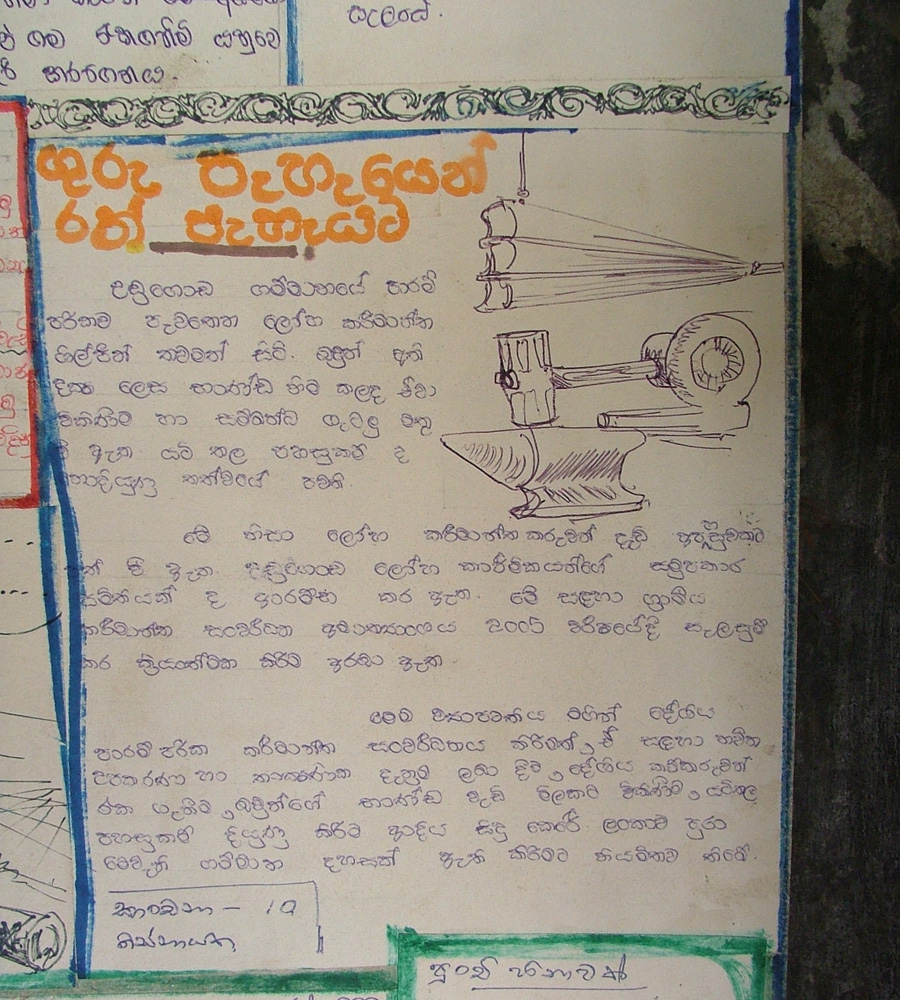 ගම එකගතිම යතුවේ
කරගෙනය.
සැලසේ.
ගුරු පැහැයෙන්
රන් පැහැයට
උඩුගොඩ ගම්මානයේ පාරම්
පරිකව පැවතෙන ලෝහ කර්මාන්ත
ශිල්පීන් තවමත් සිටී. ඔවුන් අති
දක්ෂ ලෙස භාණ්ඩ නිම කලද ඒවා
විකිණීම හා සම්බන්ධ ගැටලු මතු
වී ඇත යටි තල පහසුකම් ද
නොදියුණු තත්වයේ පවතී.
මේ නිසා ලෝහ කර්මාන්ත කරුවන් දැඩි
වී ඇත. උඩුගොඩ ලෝහ කාර්මිකයන්ගේ සමුපකාර
සමිතියක් ද ආරම්භ කර ඇත. මේ සඳහා ග්‍රාමීය
කර්මාන්ත සංවර්ධන අමාත්‍යාංශය 2005 වර්ෂයේදී සැලසුම්
කර ක්‍රියාත්මක කිරීම අරඹා ඇත
මෙම ව්‍යාපෘතිය මගින් දේශීය
පාරම්පරික කර්මාන්ත සංවර්ධනය කිරීමත්, ඒ සඳහා නවීන
උපකරණ හා තාක්ෂණික දැනුම ලබා දීම, දේශීය කර්මකරුවන්
රැක ගැනීම, ඔවුන්ගේ භාණ්ඩ වැඩි මිලකට විකිණීම, යටිතල
පහසුකම් දියුණු කිරීම ආදිය සිදු කෙරේ ලංකාව පුරා
මෙවැනි ගම්මාන දහසක් ඇති කිරීමට නියමිතව තිබේ.
කාංචනා - 10
තිස්නායක
පුංචි